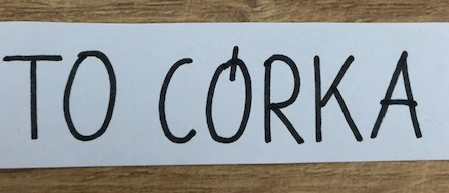 TO CÓRKA